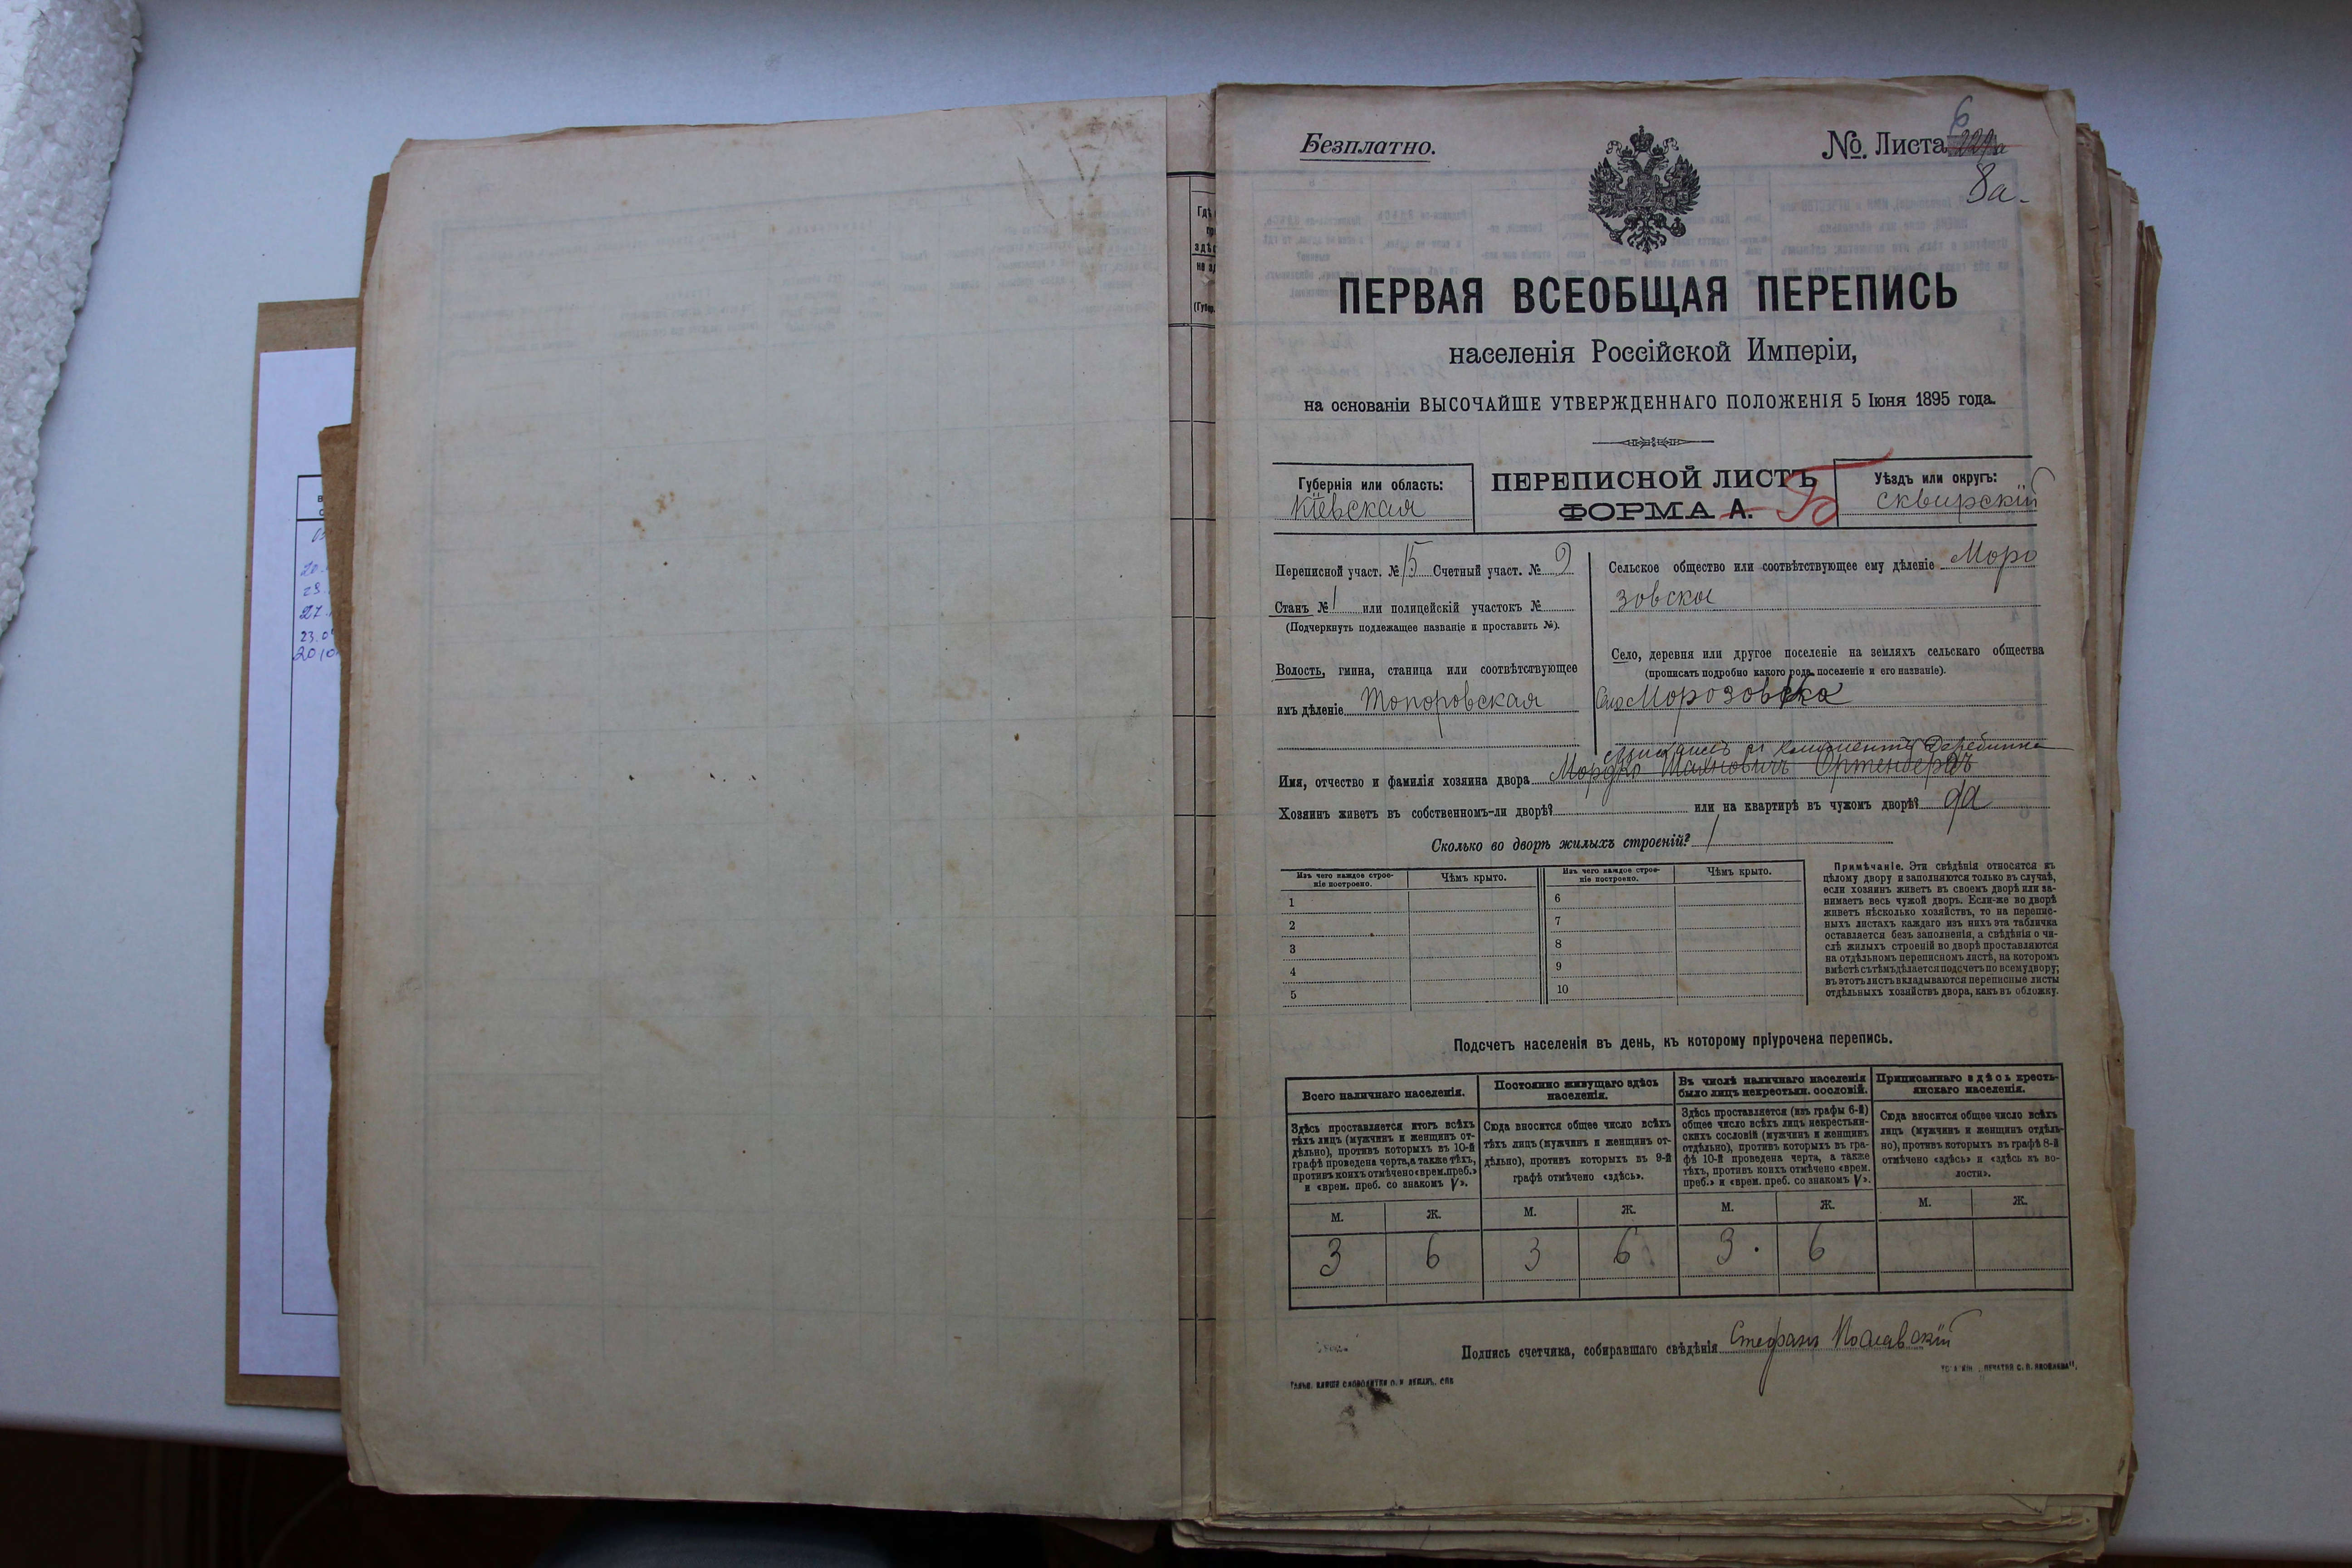 Безплатно.
№. Листа 6
8а.
ПЕРВАЯ ВСЕОБЩАЯ ПЕРЕПИСЬ
населенія Россійской Имперіи,
на основаніи ВЫСОЧАЙШЕ УТВЕРЖДЕННАГО ПОЛОЖЕНІЯ 5 Іюня 1895 года.
Губернія или область:
Кіевская
ПЕРЕПИСНОЙ ЛИСТЪ
ФОРМА А. Б
Уѣздъ или округъ:
Сквирскій
Переписной участ. № 15 Счетный участ. № 9
Станъ № 1 или полицейскій участокъ №
(Подчеркнуть подлежащее названіе и проставить №).
Волость, гмина, станица или соотвѣтствующее
имъ дѣленіе Топоровская
Сельское общество или соотвѣтствующее ему дѣленіе Моро
зовско
Село, деревня или другое поселеніе на земляхъ сельскаго общества
(прописать подробно какого рода поселеніе и его названіе).
Село Морозовка
Имя, отчество и фамилія хозяина двора Мордко Шаяновичъ Ортенбергъ
Хозяинъ живетъ въ собственномъ-ли дворѣ? или на квартирѣ въ чужомъ дворѣ? да
Сколько во дворѣ жилыхъ строеній? 1
Изъ чего каждое строе-
ніе построено.
Чѣмъ крыто.
Изъ чего каждое строе-
ніе построено.
Чѣмъ крыто.
1 6
2 7
3 8
4 9
5 10
Примѣчаніе. Эти свѣдѣнія относятся къ
цѣлому двору и заполняются только въ случаѣ,
если хозяинъ живетъ въ своемъ дворѣ или за-
нимаетъ весь чужой дворъ. Если-же во дворѣ
живетъ нѣсколько хозяйствъ, то на перепис-
ныхъ листахъ каждаго изъ нихъ эта табличка
оставляется безъ заполненія, а свѣдѣнія о чи-
слѣ жилыхъ строеній во дворѣ проставляются
на отдѣльномъ переписномъ листѣ, на которомъ
вмѣстѣ съ тѣмъ дѣлается подсчетъ по всему двору;
въ этотъ листъ вкладываются переписные листы
отдѣльныхъ хозяйствъ двора, какъ въ обложку.
Подсчетъ населенія въ день, къ которому пріурочена перепись.
Всего наличнаго населенія.
Здѣсь проставляется итогъ всѣхъ
тѣхъ лицъ (мужчинъ и женщинъ от-
дѣльно), противъ которыхъ въ 10-й
графѣ проведена черта, а также тѣхъ,
противъ коихъ отмѣчено «врем. преб.»
и «врем. преб. со знакомъ V».
Постоянно живущаго здѣсь
населенія.
Сюда вносится общее число всѣхъ
тѣхъ лицъ (мужчинъ и женщинъ от-
дѣльно), противъ которыхъ въ 9-й
графѣ отмѣчено «здѣсь».
Въ числѣ наличнаго населенія
было лицъ некрестьян. сословій.
Здѣсь проставляется (изъ графы 6-й)
общее число всѣхъ лицъ некрестьян-
скихъ сословій (мужчинъ и женщинъ
отдѣльно), противъ которыхъ въ гра-
фѣ 10-й проведена черта, а также
тѣхъ, противъ коихъ отмѣчено «врем.
преб.» и «врем. преб. со знакомъ V».
Приписаннаго здѣсь кресть-
янскаго населенія.
Сюда вносится общее число всѣхъ
лицъ (мужчинъ и женщинъ отдѣль-
но), противъ которыхъ въ графѣ 8-й
отмѣчено «здѣсь» и «здѣсь къ во-
лости».
М. Ж. М. Ж. М. Ж. М. Ж.
3 6 3 6 3 6
Подпись счетчика, собиравшаго свѣдѣнія Стефанъ